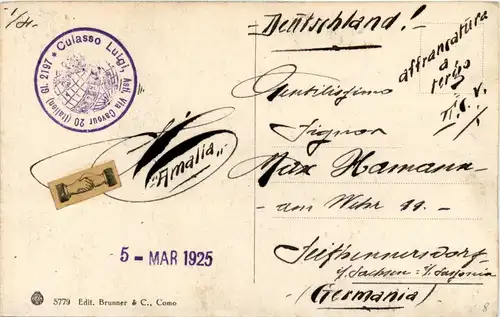 Culasso Luigi, Asti, Via Cavour 20 (Italien) Gl. 2197 *
"Amalia"
5 - MAR 1925
5779 Edit. Brunner & C., Como
Deutschland!
affrancatura
a
tergo
Gentilissimo
Signor
Max Hamann
am Wehr 11.-
Seifhennersdorf
i/Sachsen: i/Sassonia
(Germania)
8